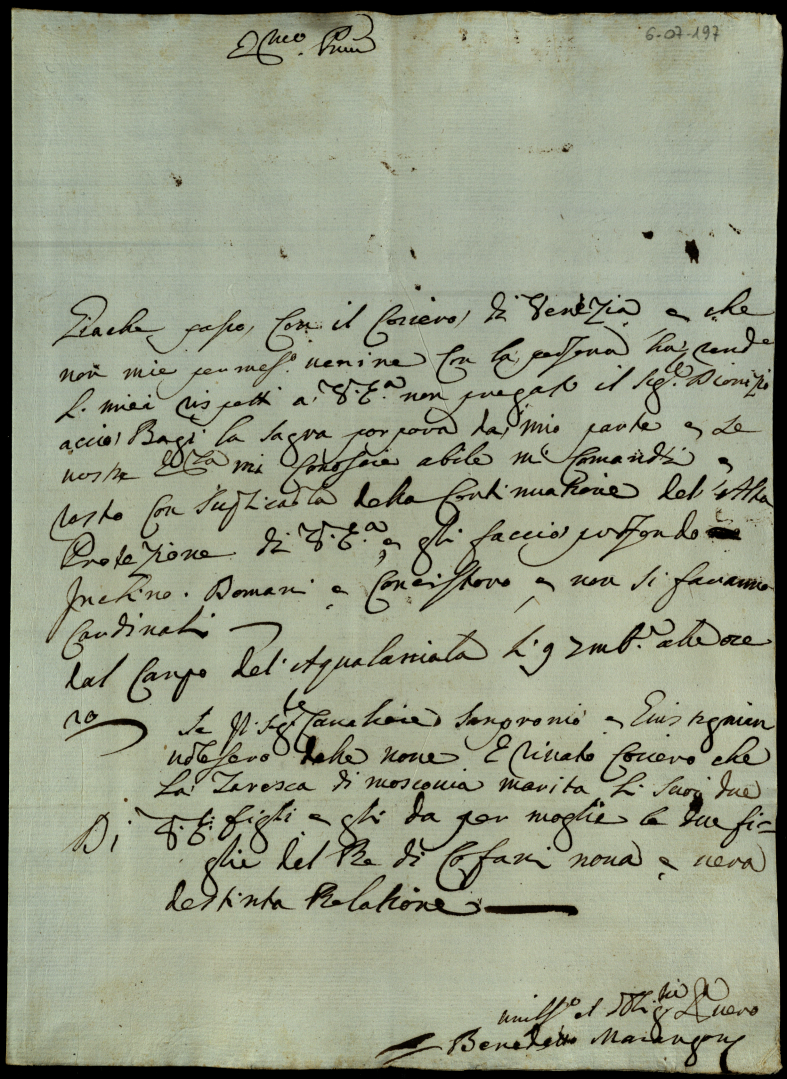 6-07-197
Giache passo, Con il Coriero, di Venezia e che
non mie permesº. uenire Con la persona ha rende
L. miei rispetti a: V. E.ª non pregato il Sigr. Dionizio
accio, Bagi la Sagra porpora da, mio parte e se
uostra Ecza mi Conoscie abile mi Comandi e
resto Con suplicarla della Continuazione del: Alta
Protezione di V. E.ª e gli faccio profondo
Inchino. Domani e Concistoro e non si faranno
Cardinali
dal Campo del: Aqualaniata Li 9 7mbr. alle ore
20
Se Il Sigr. Caualiere Sangronio e
uolessero delle noue E riuato Coriero che
La Zaresca di moscouia marita Li Suoi due
Di V: E: figli e gli da per moglie le due fi=
glie del Re di Cofani noua e uera
destinta Relazione
umilssº et Obligm Seruo
Benedetto Marangoni